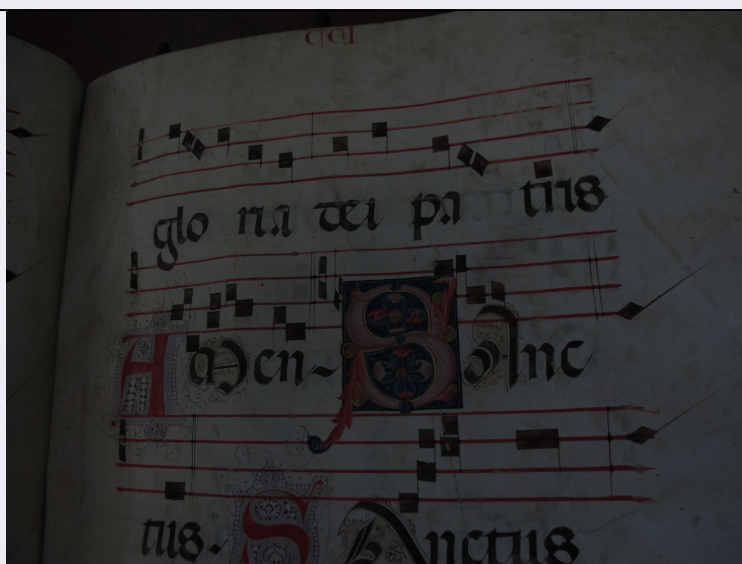 CCI
glo ria dei pa tris
Amen- Sanc
tus. Sanctus